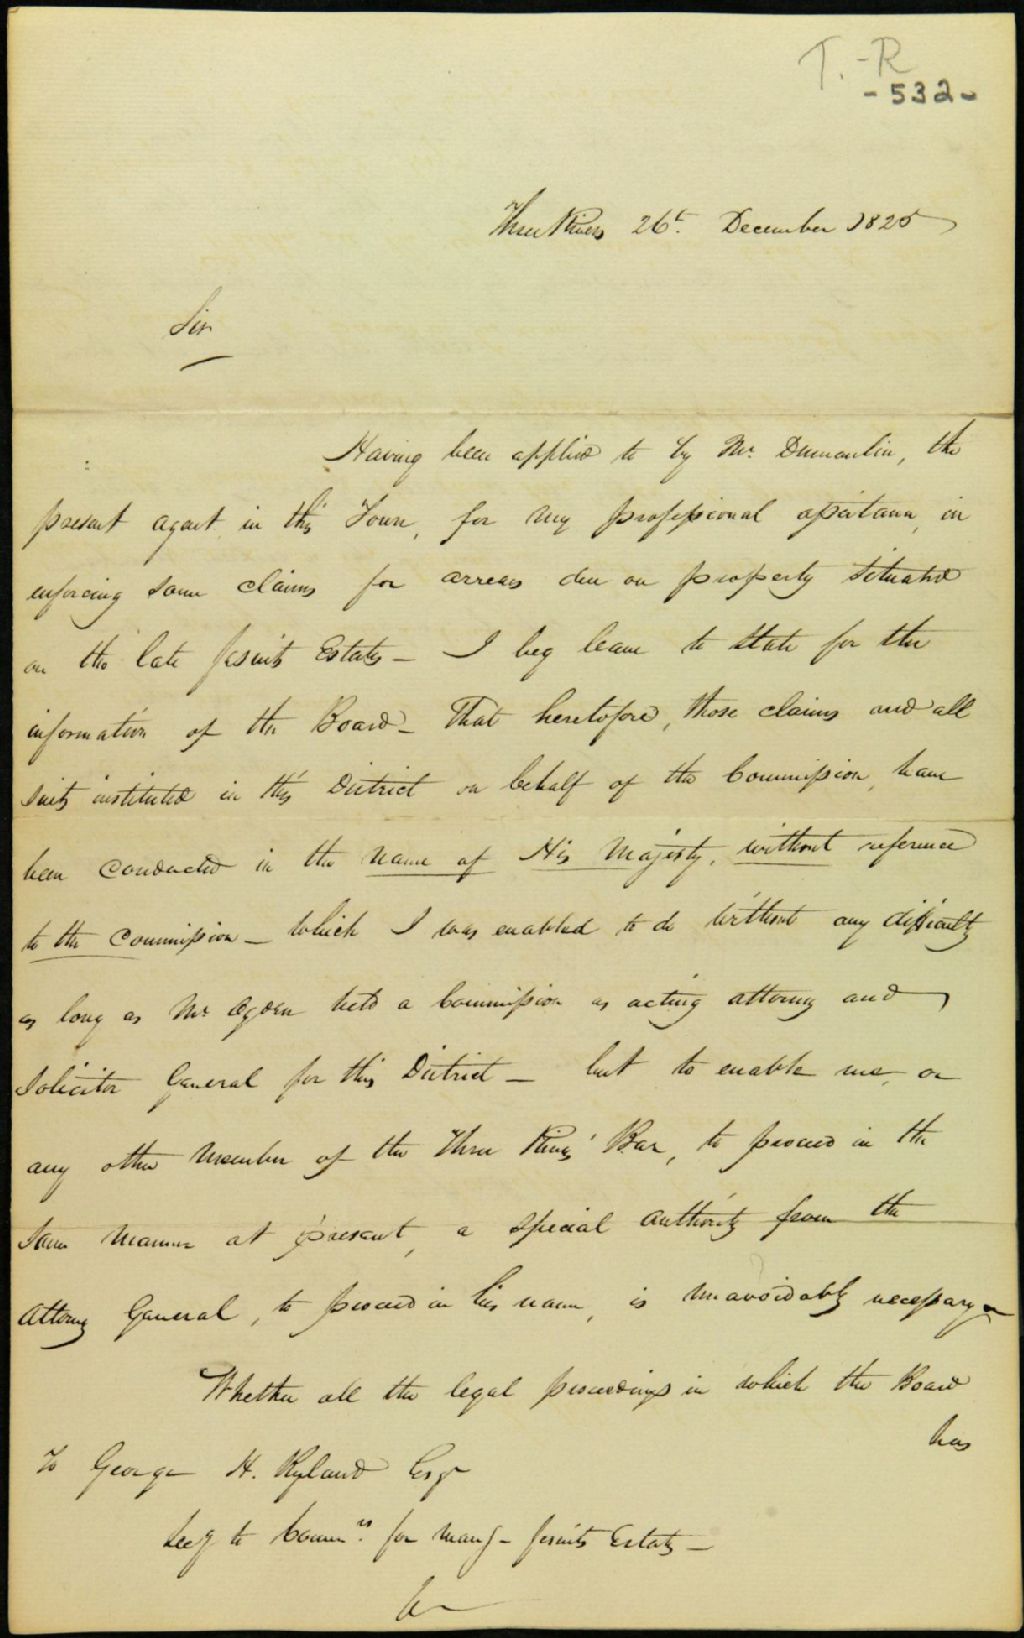 T.-R
-532-
Three Rivers 26t. December 1825
Sir
Having been applied to by Mr. Dumoulin, the
present agent in this Town, for my professional assistance, in
enforcing some claims for arrears due on property situated
on the late Jesuits Estates - I beg leave to state for the
information of the Board - That heretofore, those claims and all
suits instituted in this District on behalf of the Commission, have
been conducted in the name of His Majesty, without reference
to the Commission - which I was enabled to do without any difficulty
as long as Mr. Ogden held a Commission as acting attorney and
Solicitor General for this District - but to enable me, or
any other Member of the Three Rivers' Bar, to proceed in the
same manner at present, a special authority from the
Attorney General, to proceed in his name, is unavoidably necessary -
Whether all the legal proceedings in which the Board
has
To George H. Ryland Esqr
Secy to Commrs. for Mang - Jesuits Estates -